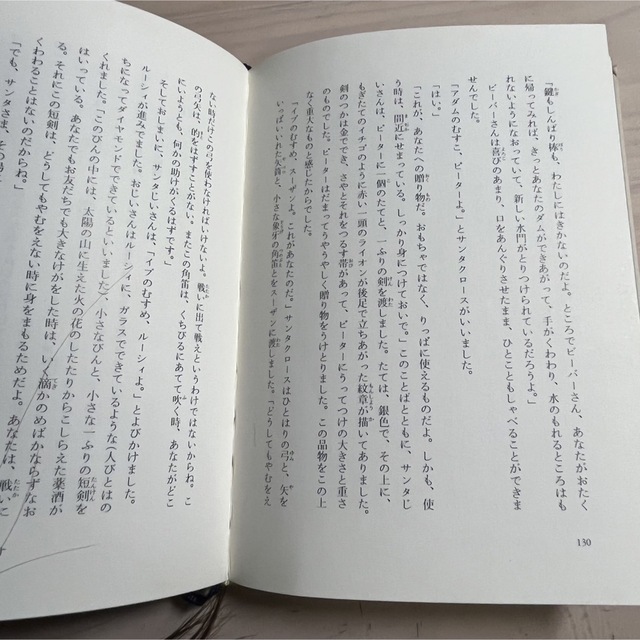 「鍵もしんばり棒も、わたしにはきかないのだよ。ところでビーバーさん、あなたがおたく
に帰ってみれば、きっとあなたのダムができあがって、手がくわわり、水のもれるところはも
れないようになおっていて、新しい水門がとりつけられているだろうよ。」
ビーバーさんは喜びのあまり、口をあんぐりさせたまま、ひとこともしゃべることができま
せんでした。
「アダムのむすこ、ピーターよ。」とサンタクロースがいいました。
「はい。」
「これが、あなたへの贈り物だ。おもちゃではなく、りっぱに使えるものだよ。しかも、使
う時は、間近にせまっている。しっかり身につけておいで。」このことばとともに、サンタじ
いさんは、ピーターに一個のたてと、一ふりの剣を渡しました。たては、銀色で、その上に、
もぎたてのイチゴのように赤い一頭のライオンが後足で立ちあがった紋章が描いてありました。
剣のつかは金でできき、さやとそれをつるす帯があって、ピーターにうってつけの大きさと重さ
のものでした。ピーターはだまってうやうやしく贈り物をうけとりました。この品物をこの上
なく重大なものと感じたからでした。
「イブのむすめ、スーザンよ。これがあなたのだ。」サンタクロースはひとはりの弓と、矢を
いっぱいいれた矢筒と、小さな象牙の角笛とをスーザンに渡しました。「どうしてもやむをえ
130
ない時だけこの弓を使わなければいけないよ。戦いに出て戦えというわけではないからね。こ
の弓矢は、的をはずすことがない。またこの角笛は、くちびるにあてて吹く時、あなたがどこ
にいようとも、何かの助けがくるはずです。」
そしておしまいに、サンタじいさんは、「イブのむすめ、ルーシィよ。」とよびかけました。
ルーシィが進みでました。おじいさんはルーシィに、ガラスでできているような（人びとはの
ちになってダイヤモンドでできているといいました）、小さなびんと、小さな一ふりの短剣を
「このびんの中には、太陽の山に生えた火の花のしたたりからこしらえた薬酒が
はいっている。あなたでもお友だちでも大きなけがをした時は、いく滴かのめばかならずなお
る。それにこの短剣は、どうしてもやむをえない時に身をまもるためだよ。あなたは、戦いに
くわわることはないのだからね。」
「でも、サンタさま、